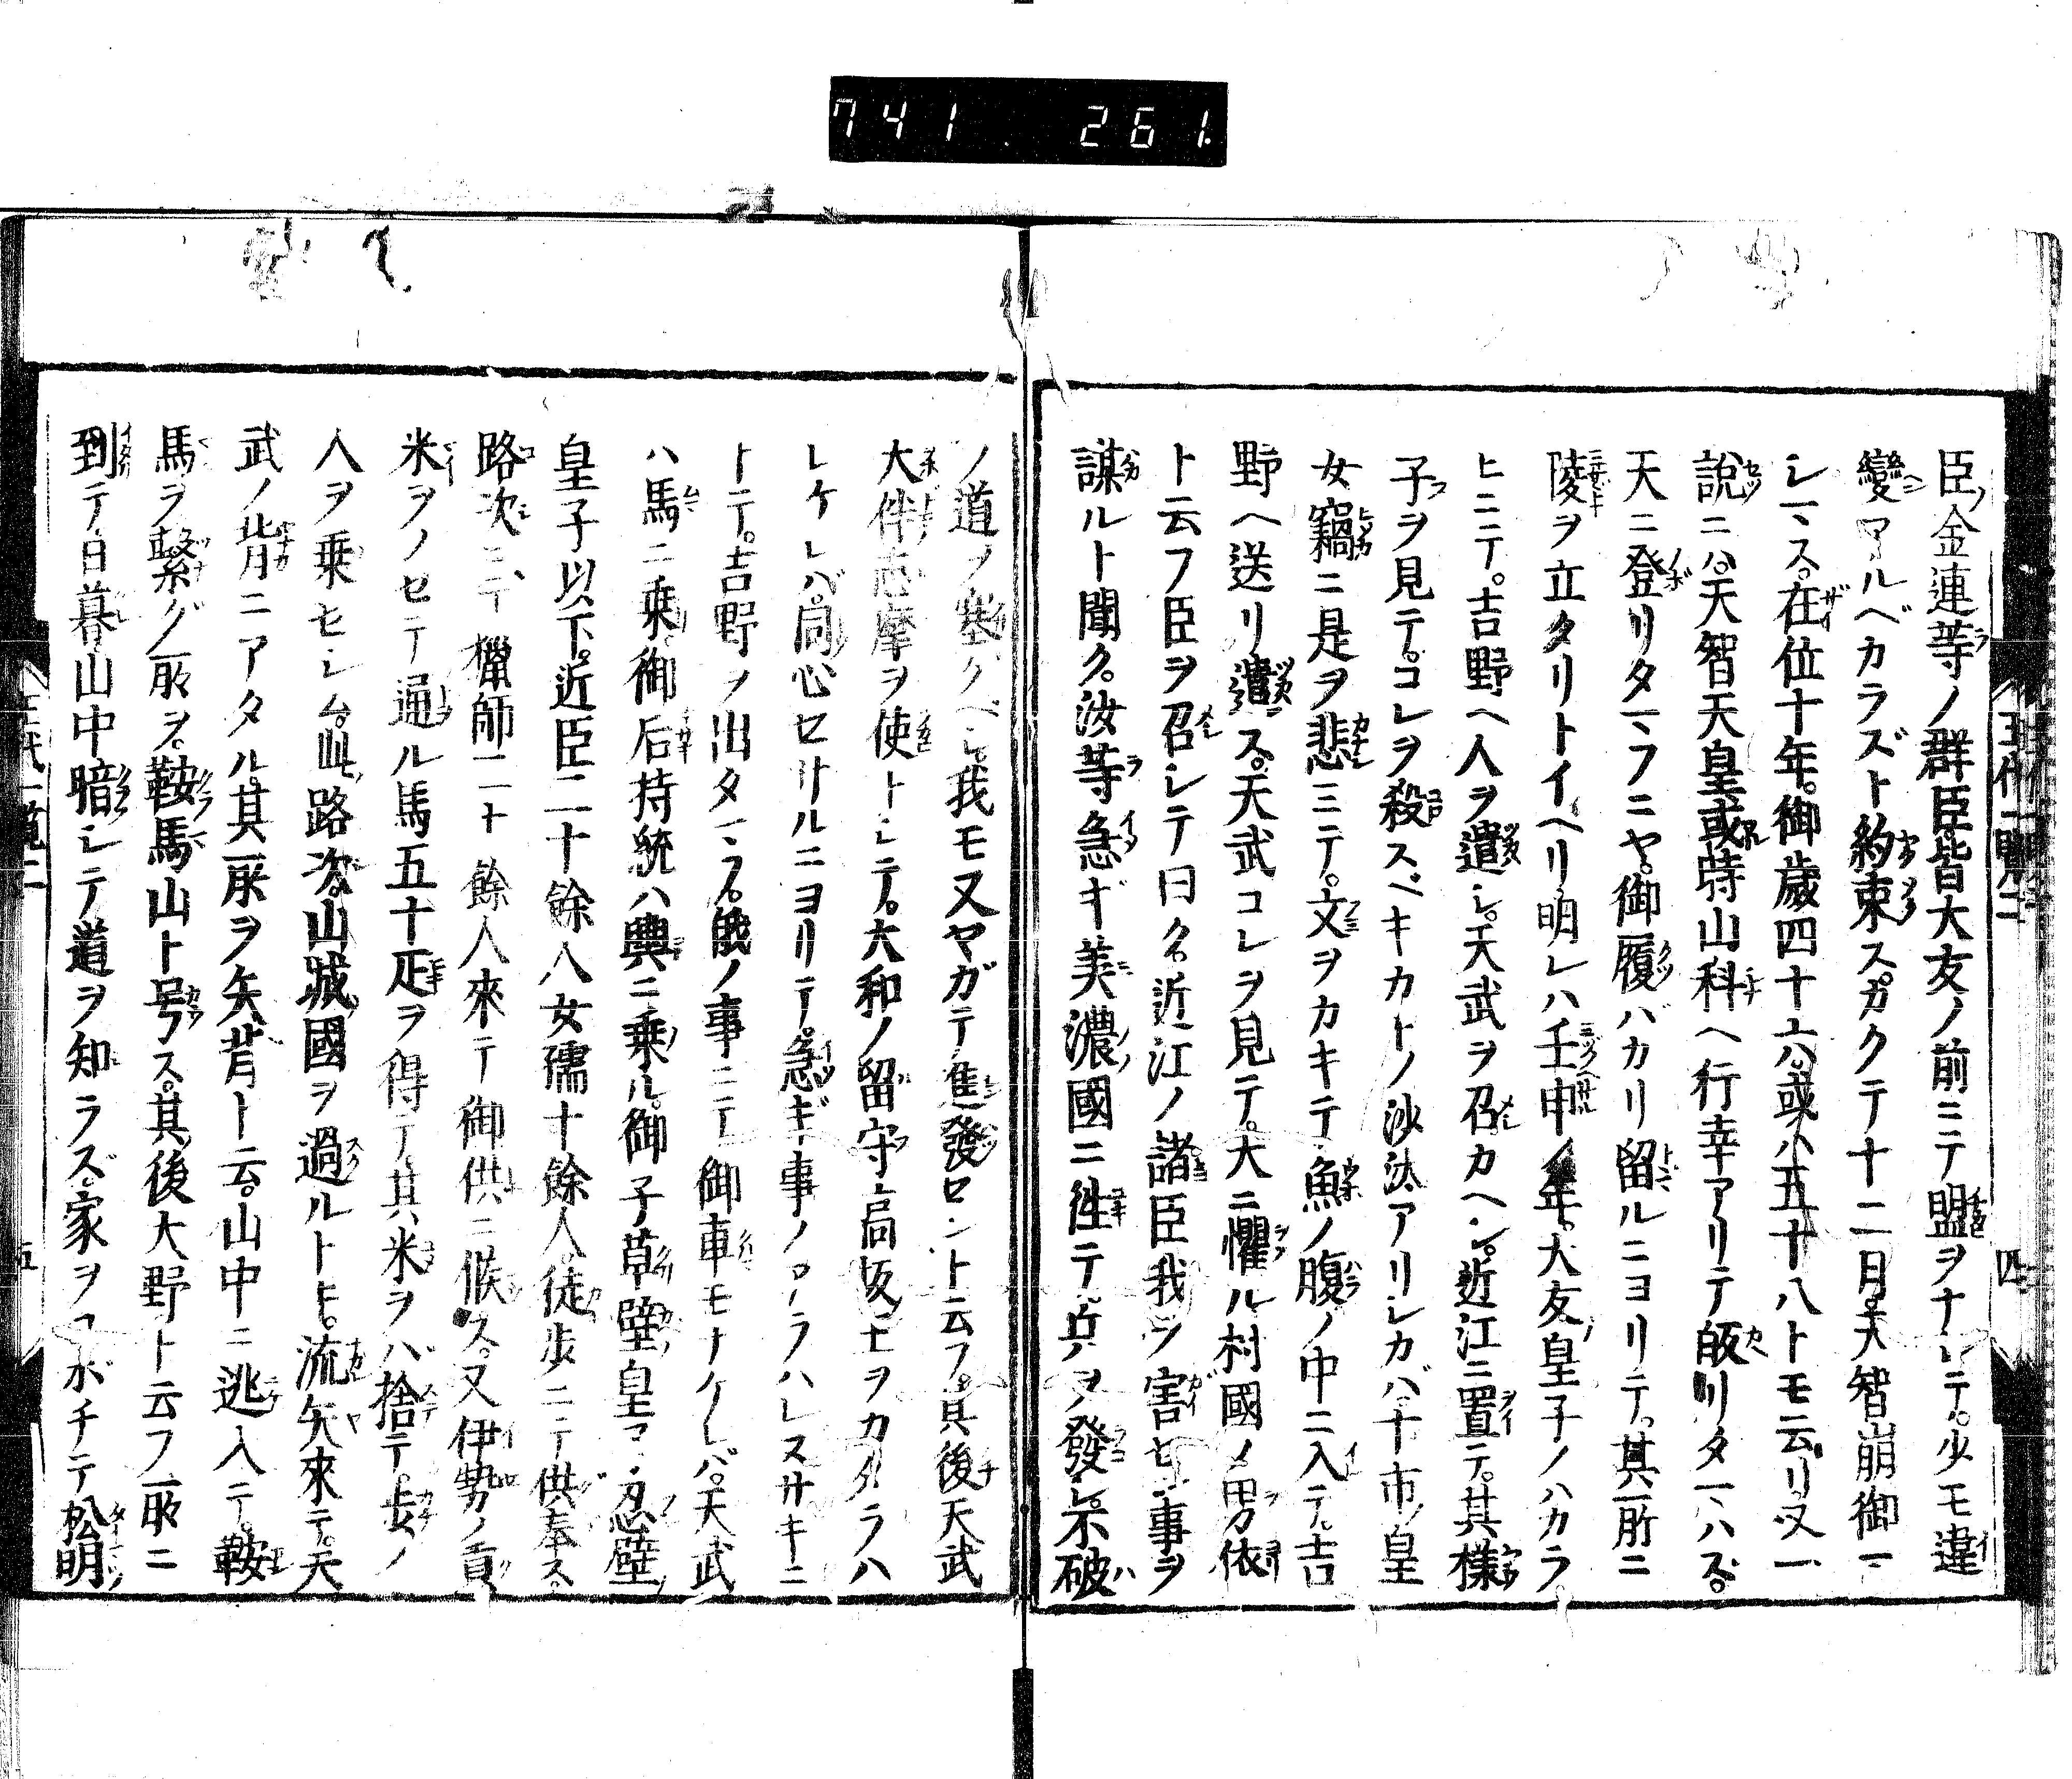 741 261
臣金連等ノ群臣皆大友ノ前ニテ盟ヲナシテ。少モ違
變アルベカラズト約束ス。カクテ十二月。天智崩御マ
シマス。在位十年。御歳四十六。或ハ五十八トモ云リ。又一
說ニハ。天智天皇或時山科ヘ行幸アリテ皈リタマハズ。
天ニ登リタマフニヤ。御履バカリ留ルニヨリテ。其所ニ
陵ヲ立タリトイヘリ。明レハ壬申ノ年。大友皇子ノハカラ
ヒニテ。吉野ヘ人ヲ遣シ。天武ヲ召カヘシ。近江ニ置テ。其樣
子ヲ見テ。コレヲ殺スベキカトノ沙汰アリシカバ。十市皇
女竊ニ是ヲ悲ミテ。文ヲカキテ鮒ノ腹ノ中ニ入テ。吉
野ヘ送リ遣ス。天武コレヲ見テ。大ニ懼ル。村國ノ男依
ト云フ臣ヲ召シテ曰ク。近江ノ諸臣我ヲ害セン事ヲ
謀ルト聞ク。汝等急ギ美濃國ニ往テ兵ヲ發シ。不破
ノ道ヲ塞クベシ。我モ又ヤガテ進發セント云フ。其後天武
大伴志摩ヲ使トシテ。大和ノ留守高坂王ヲカタラハ
シケレバ。同心セサルニヨリテ。急ギ事ノアラハレヌサキニ
トテ。吉野ヲ出タマフ。俄ノ事ニテ御車モナケレバ。天武
ハ馬ニ乘。御后持統ハ輿ニ乘ル。御子草壁皇子忍壁
皇子以下。近臣二十餘人女孺十餘人。徒步ニテ供奉ス。
路次ニテ獵師二十餘人來テ御供ニ候ス。又伊勢ノ貢
米ヲノセテ通ル馬五十疋ヲ得テ其米ヲハ捨テ步ノ
人ヲ乘セシム。此路次。山城國ヲ過ルトキ。流矢來テ。天
武ノ背ニアタル。其所ヲ矢背ト云。山中ニ逃入テ。鞍
馬ヲ繫グ所ヲ。鞍馬山ト号ス。其後大野ト云フ所ニ
到テ日暮。山中暗シテ道ヲ知ラズ。家ヲコボチテ松明